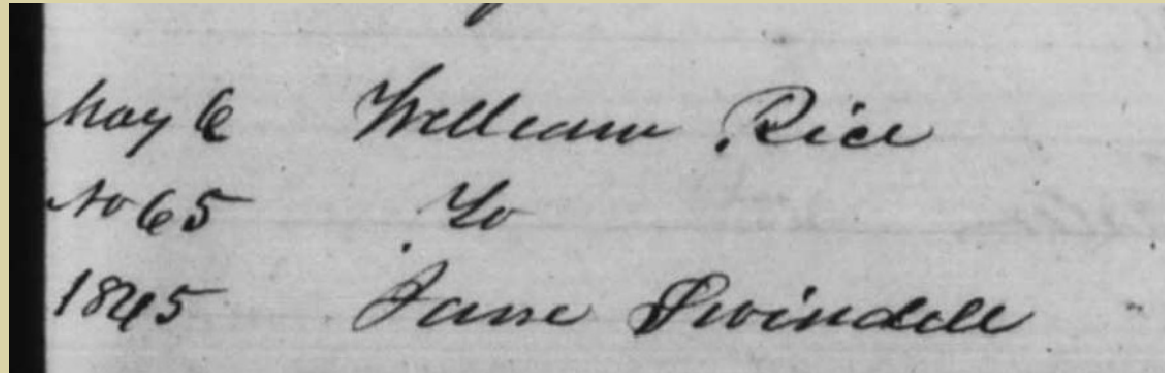 May 6 William Rice
No 65 To
1845 Jane Swindell